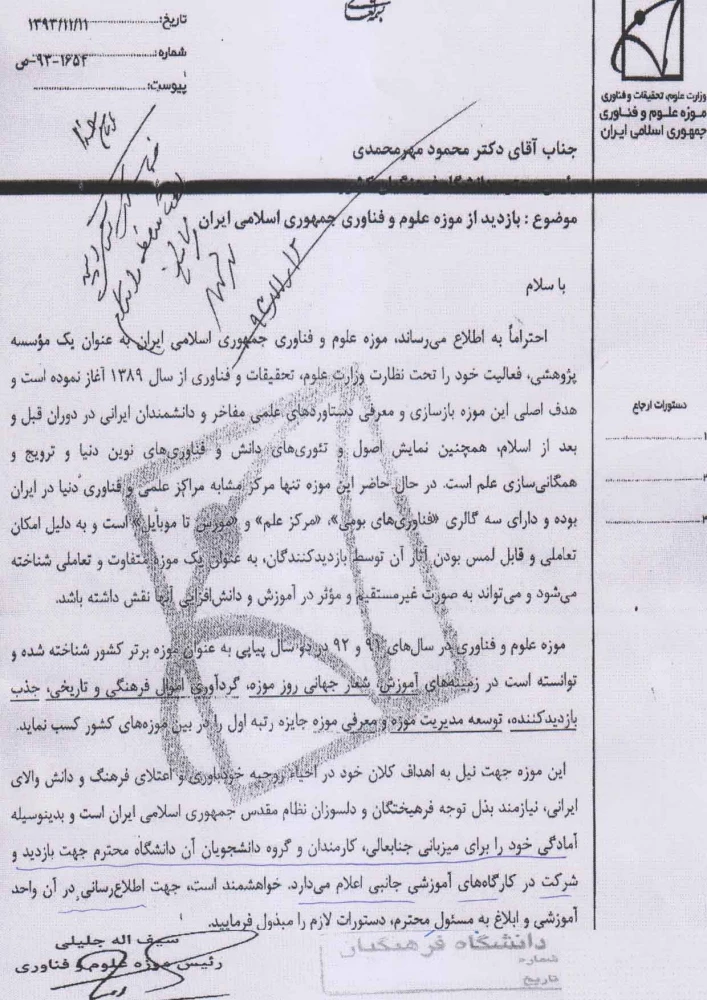 تاریخ: ۱۳۹۳/۱۱/۱۱
شماره: ۱۶۵۴-۹۳-ص
پیوست:
وزارت علوم، تحقیقات و فناوری
موزه علـوم و فنـاوری
جمهوری اسلامی ایـران
جناب آقای دکتر محمود مهرمحمدی
موضوع : بازدید از موزه علوم و فناوری جمهوری اسلامی ایران
۹۳/۱۱/۱۲
با سلام
احتراماً به اطلاع می‌رساند، موزه علوم و فناوری جمهوری اسلامی ایران به عنوان یک مؤسسه
پژوهشی، فعالیت خود را تحت نظارت وزارت علوم، تحقیقات و فناوری از سال ۱۳۸۹ آغاز نموده است و
هدف اصلی این موزه بازسازی و معرفی دستاوردهای علمی مفاخر و دانشمندان ایرانی در دوران قبل و
بعد از اسلام، همچنین نمایش اصول و تئوری‌های دانش و فناوری‌های نوین دنیا و ترویج و
همگانی‌سازی علم است. در حال حاضر این موزه تنها مرکز مشابه مراکز علمی و فناوری دنیا در ایران
بوده و دارای سه گالری «فناوری‌های بومی»، «مرکز علم» و «مورس تا موبایل» است و به دلیل امکان
تعاملی و قابل لمس بودن آثار آن توسط بازدیدکنندگان، به عنوان یک موزه متفاوت و تعاملی شناخته
می‌شود و می‌تواند به صورت غیرمستقیم و مؤثر در آموزش و دانش‌افزایی آنها نقش داشته باشد.
موزه علوم و فناوری در سال‌های ۹۱ و ۹۲ در دو سال پیاپی به عنوان موزه برتر کشور شناخته شده و
توانسته است در زمینه‌های آموزش، شعار جهانی روز موزه، گردآوری اموال فرهنگی و تاریخی، جذب
بازدیدکننده، توسعه مدیریت موزه و معرفی موزه جایزه رتبه اول را در بین موزه‌های کشور کسب نماید.
این موزه جهت نیل به اهداف کلان خود در احیاء روحیه خودباوری و اعتلای فرهنگ و دانش والای
ایرانی، نیازمند بذل توجه فرهیختگان و دلسوزان نظام مقدس جمهوری اسلامی ایران است و بدینوسیله
آمادگی خود را برای میزبانی جنابعالی، کارمندان و گروه دانشجویان آن دانشگاه محترم جهت بازدید و
شرکت در کارگاه‌های آموزشی جانبی اعلام می‌دارد. خواهشمند است، جهت اطلاع‌رسانی در آن واحد
آموزشی و ابلاغ به مسئول محترم، دستورات لازم را مبذول فرمایید.
سیف اله جلیلی
رئیس موزه علوم و فناوری
دستورات ارجاع
۱
۲
۳
دانشگاه فرهنگیان
شماره
تاریخ